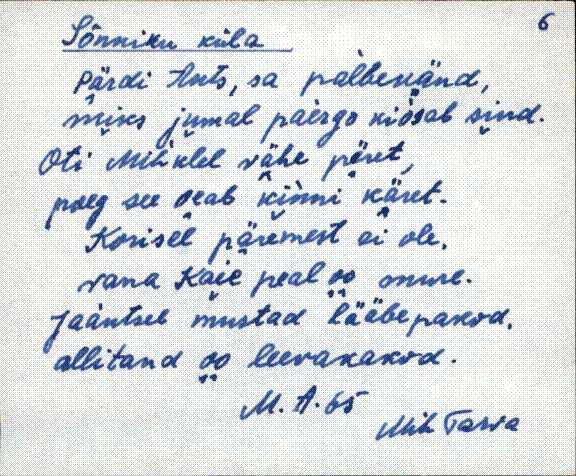 6
Sõnniku küla
Pärdi Ants, sa pàlbenänd,
miks jumal paèrgo kiòsab sind.
Oti Mihklel vähe päret,
poeg see veab kìnni käret.
Korisel päremest ei ole,
vana Kaie peal oo mure.
Jaàntseb mustad lääbepakud,
allitand oo leevakakud.
M. A. 65
Mih Tarva